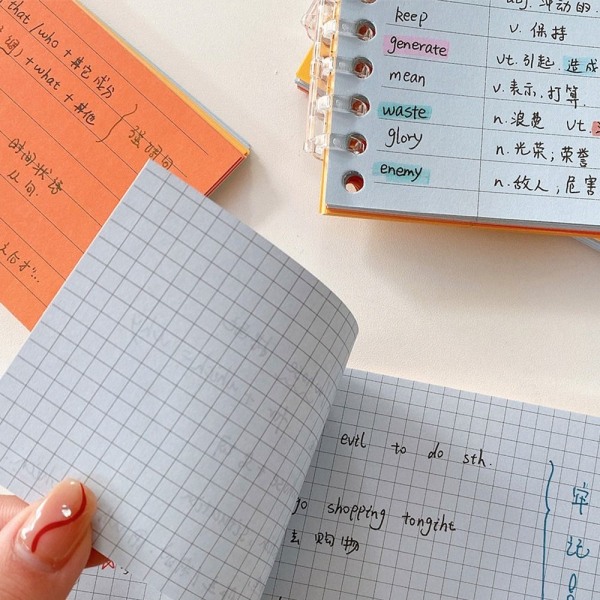 that/who + 其它成分
+ what + 其他
强调句
时间状语
从句
adj. 冲动的
keep v. 保持
generate vt. 引起. 造成
mean v. 表示. 打算
waste n. 浪费 vt.
glory n. 光荣; 荣誉
enemy n. 敌人; 危害
evtl to do sth.
go shopping tonghit
去购物
牢
记